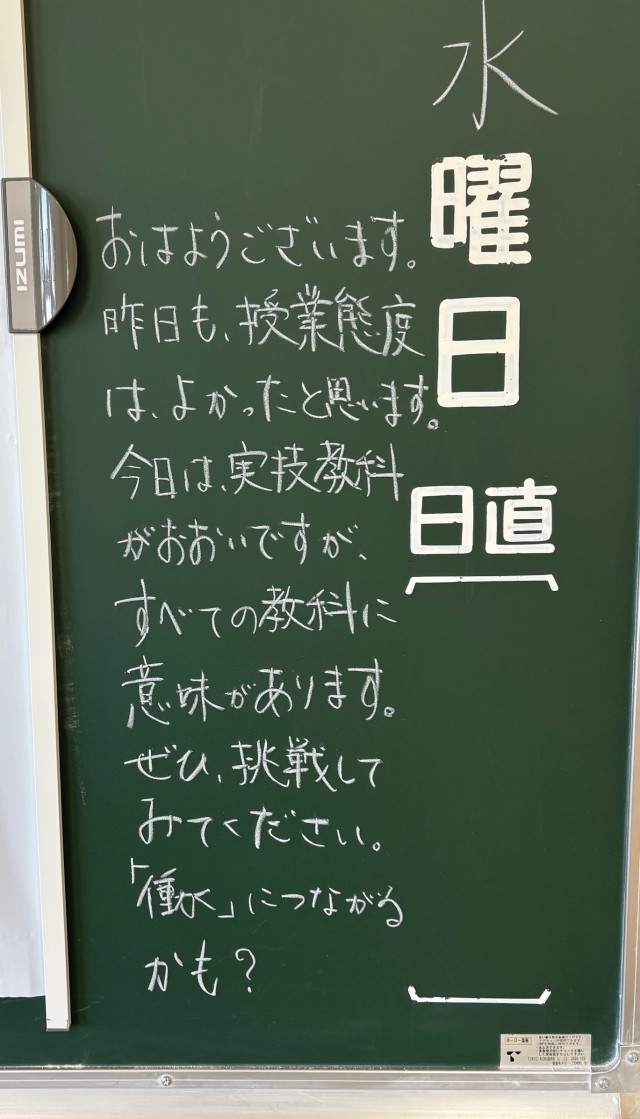 水
曜
日
日直
おはようございます。
昨日も、授業態度
は、よかったと思います。
今日は、実技教科
がおおいですが、
すべての教科に
意味があります。
ぜひ、挑戦して
みてください。
「働水」につながる
かも？
IZUMI